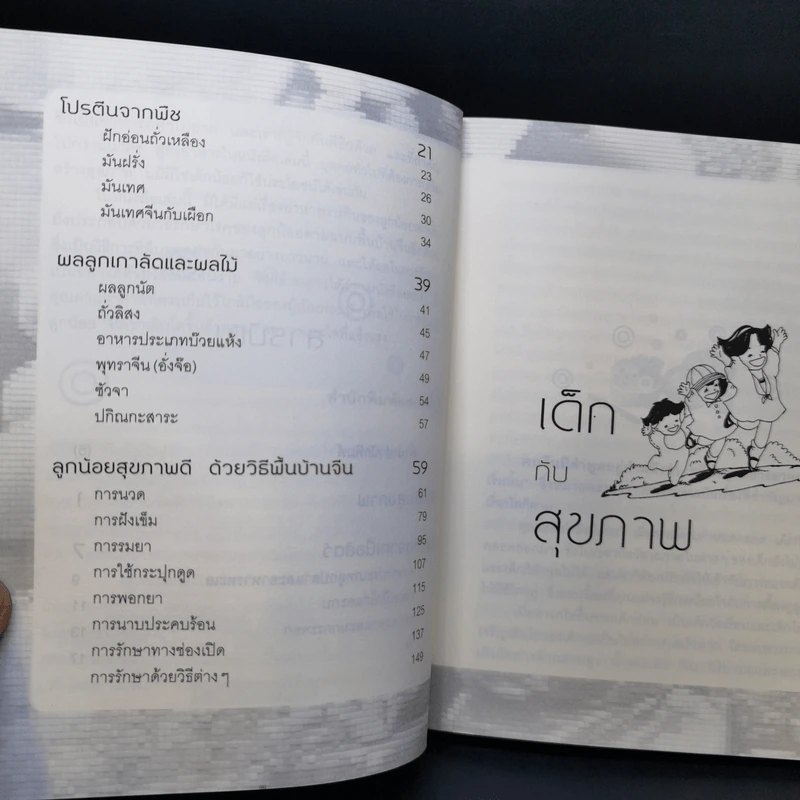 โปรตีนจากพืช 21
ฝักอ่อนถั่วเหลือง 23
มันฝรั่ง 26
มันเทศ 30
มันเทศจีนกับเผือก 34
ผลลูกเกาลัดและผลไม้ 39
ผลลูกนัต 41
ถั่วลิสง 45
อาหารประเภทบ๊วยแห้ง 47
พุทราจีน (อั่งจ๊อ) 49
ซัวจา 54
ปกิณกะสาระ 57
ลูกน้อยสุขภาพดี ด้วยวิธีพื้นบ้านจีน 59
การนวด 61
การฝังเข็ม 79
การรมยา 95
การใช้กระปุกดูด 107
การพอกยา 115
การนาบประคบร้อน 125
การรักษาทางช่องเปิด 137
การรักษาด้วยวิธีต่าง ๆ 149
เด็ก
กับ
สุขภาพ